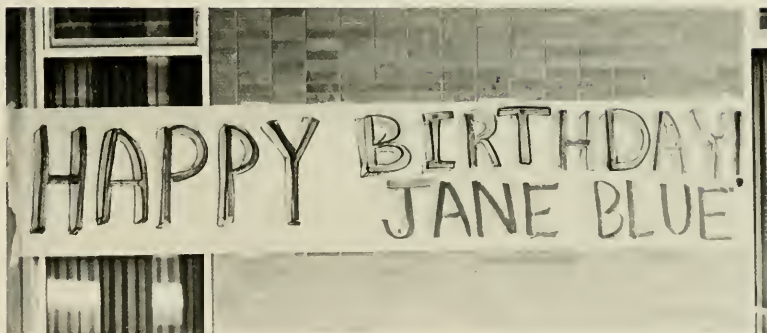 HAPPY BIRTHDAY!
JANE BLUE